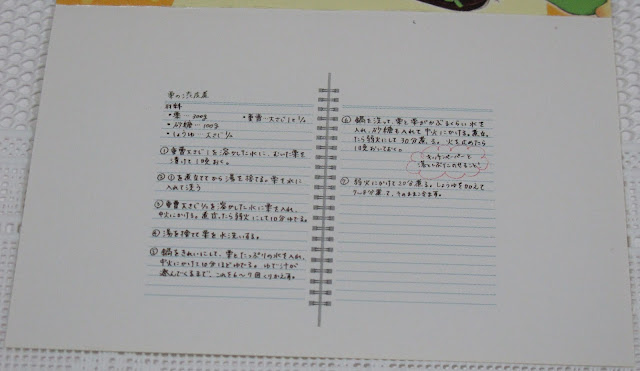 栗の渋皮煮
材料
・栗…300g ・重曹…大さじ1と1/2
・砂糖…100g
・しょうゆ…大さじ1/2
①重曹大さじ1を溶かした水に、むいた栗を
漬けて1晩おく。
②①を煮立ててから湯を捨てる。栗を水に
入れて洗う
③重曹大さじ1/2を溶かした水に栗を入れ、
中火にかける。煮立ったら弱火にして10分ゆでる。
④湯を捨てて栗を水洗いする。
⑤鍋をきれいにして、栗とたっぷりの水を入れ、
中火にかけて10分ほどゆでる。ゆで汁が
澄んでくるまで、これを6〜7回くりかえす。
⑥鍋を洗って、栗と栗がかぶるくらいの水を
入れ、砂糖も入れて中火にかける。煮立っ
たら弱火にして30分煮る。火を止めたら
1晩おいておく。
キッチンペーパーで
落しぶたをのせること。
⑦弱火にかけて20分煮る。しょうゆを加えて
7〜8分煮て、そのままさます。